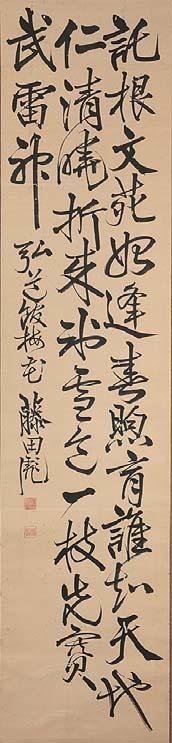 託根文苑始逢春煦育誰知天地
仁清曉折来氷雪色一枝先賽
武雷神
弘道館梅花 藤田彪